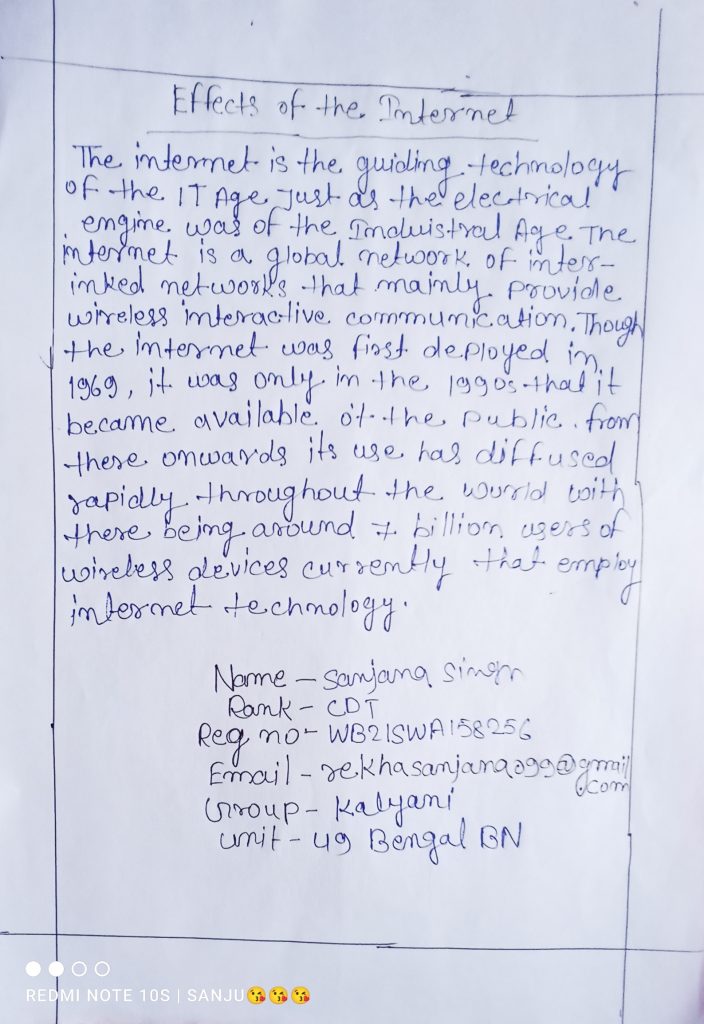 Effects of the Internet
The internet is the guiding technology
of the IT Age Just as the electrical
engine was of the Induistral Age The
internet is a global network of inter-
inked networks that mainly provide
wireless interactive communication. Though
the internet was first deployed in
1969, it was only in the 1990s that it
became available ot the public. from
there onwards its use has diffused
rapidly throughout the wurld with
there being around 7 billion users of
wireless devices currently that employ
internet technology.
Name - Sanjana Singh
Rank - CDT
Reg no - WB21SWA158256
Email - rekhasanjana099@gmail
.com
Group - Kalyani
Unit - 49 Bengal BN
REDMI NOTE 10S | SANJU😘😘😘